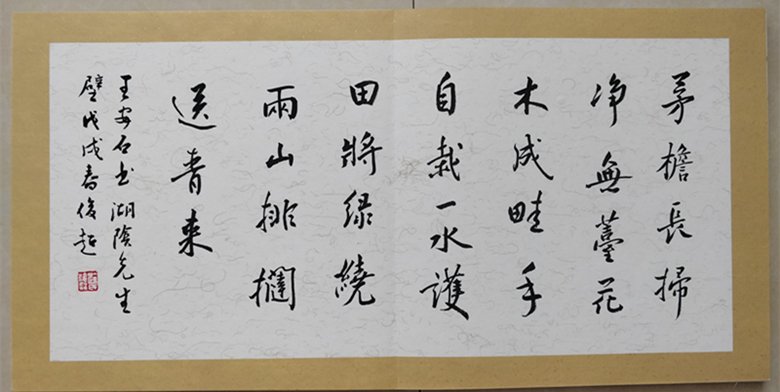 茅檐長掃
净無薹花
木成畦手
自栽一水護
田將緑繞
兩山排
送青来
王安石书湖陰先生
壁戊戌春俊超